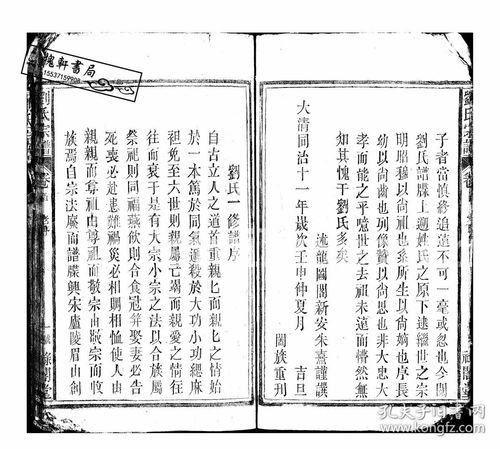 子者當慎終追遠不可一毫或忽也今閱
劉氏譜牒上遡姓氏之原下逮繼世之宗
明昭穆以尚祖也系所生以尚嫡也序長
幼以尚齒也列像贊以尚思也非大忠大
孝而能之乎噫世之去祖未遠而懵然無
知其愧于劉氏多矣
述龍圖閣新安朱熹謹譔
大清同治十一年歲次壬申仲夏月 吉旦
闔族重刊
劉氏一修譜序
自古立人之道首重親匕而親匕之情始
於一本篤於同氣遞殺於大功小功緦麻
袒免至六世則親屬已竭而親愛之情往
往而衰于是有大宗小宗之法以合族屬
祭祀則同福燕飲則合食冠昏娶妻必告
死喪必赴患難禍災必相賙相恤使人由
親親而尊祖由尊祖而敬宗由敬宗而收
族焉自宗法廢而譜牒興宋廬陵眉山創
劉氏宗譜
卷
祿閣堂
槐軒書局
15537159908
孔夫子旧书网